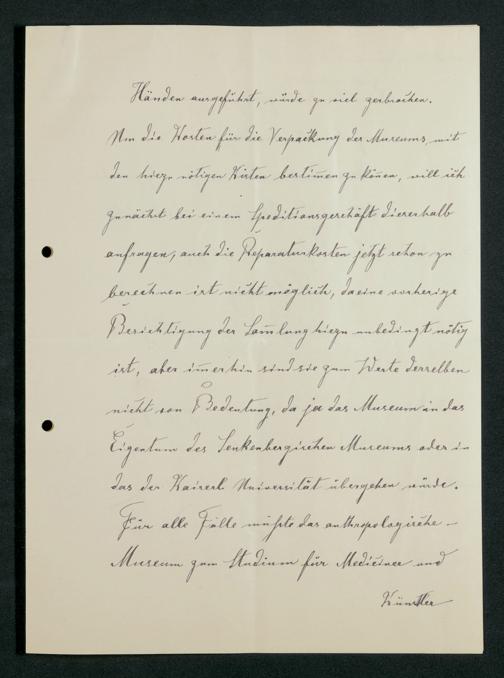 Händen ausgeführt, würde zu viel zerbrochen.
Um die Kosten für die Verpackung des Museums, mit
den hiezu nötigen Kisten bestimmen zu können, will ich
zunächst bei einem Speditionsgeschäft dieserhalb
anfragen, auch die Reparaturkosten jetzt schon zu
berechnen ist nicht möglich, da eine vorherige
Besichtigung der Sammlung hiezu unbedingt nötig
ist, aber immerhin sind sie zum Werte derselben
nicht von Bedeutung, da ja das Museum in das
Eigentum des Senkenbergischen Museums oder in
das der Kaiserl Universität übergehen würde.
Für alle Fälle müsste das anthropologische –
Museum zum Studium für Mediciner und
Künstler